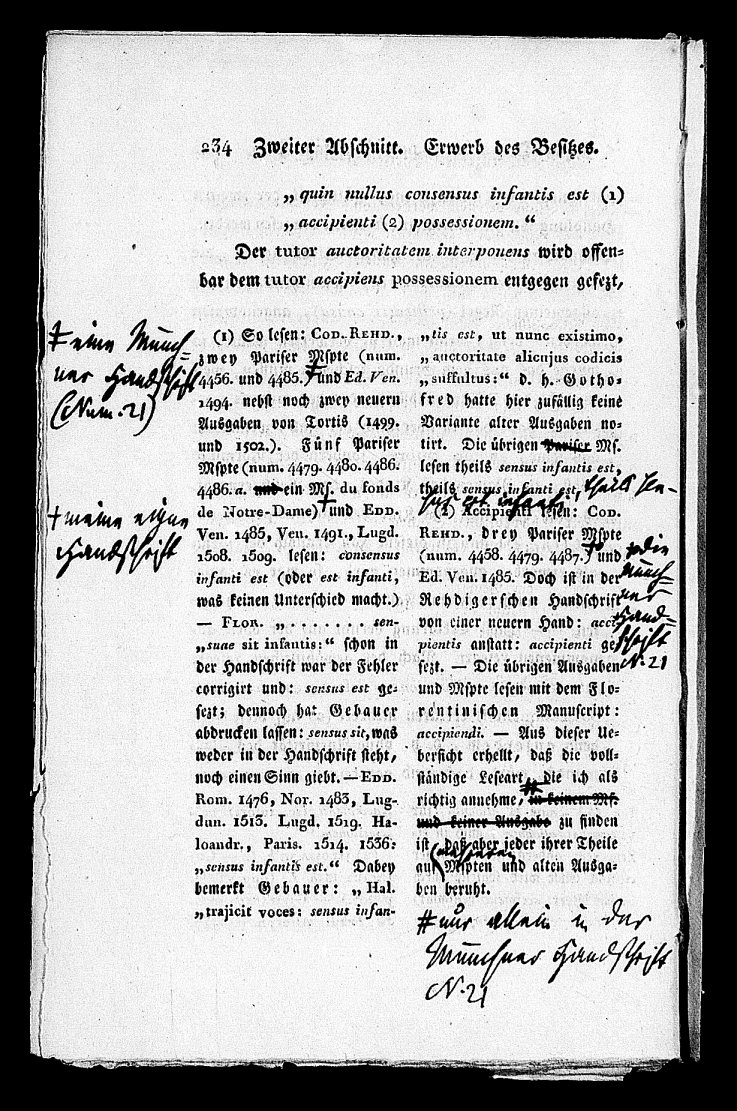 234 Zweiter Abschnitt. Erwerb des Besitzes.
„quin nullus consensus infantis est (1)
„accipienti (2) possessionem.“
Der tutor auctoritatem interponens wird offen=
bar dem tutor accipiens possessionem entgegen gesezt,
(1) So lesen: Cod. Rehd.,
zwey Pariser Mspte (num.
4456. und 4485.) und Ed. Ven.
1494. nebst noch zwey neuern
Ausgaben von Tortis (1499.
und 1502.). Fünf Pariser
Mspte (num. 4479. 4480. 4486.
4486. a. und ein Ms. du fonds
de Notre-Dame) und Edd.
Ven. 1485, Ven. 1491., Lugd.
1508. 1509. lesen: consensus
infanti est (oder est infanti,
was keinen Unterschied macht.)
— Flor. „ . . . . . . . sen-
„suae sit infantis:“ schon in
der Handschrift war der Fehler
corrigirt und: sensus est ge=
sezt; dennoch hat Gebauer
abdrucken lassen: sensus sit, was
weder in der Handschrift steht,
noch einen Sinn giebt. — Edd.
Rom. 1476, Nor. 1483, Lug-
dun. 1513. Lugd. 1519. Ha-
loandr., Paris. 1514. 1536:
„sensus infantis est.“ Dabey
bemerkt Gebauer: „Hal.
„trajicit voces: sensus infan-
„tis est, ut nunc existimo,
„auctoritate alicujus codicis
„suffultus:“ d. h. Gotho=
fred hatte hier zufällig keine
Variante alter Ausgaben no=
tirt. Die übrigen Pariser Ms.
lesen theils sensus infantis est,
theils sensus infanti est, theils sen-
sus est infanti.
(2) Accipienti lesen: Cod.
Rehd., drey Pariser Mspte
(num. 4458. 4479. 4487.) und
Ed. Ven. 1485. Doch ist in der
Rehdigerschen Handschrift
von einer neuern Hand: acci-
pientis anstatt: accipienti ge=
sezt. — Die übrigen Ausgaben
und Mspte lesen mit dem Flo=
rentinischen Manuscript:
accipiendi. — Aus dieser Ue=
bersicht erhellt, daß die voll=
ständige Leseart, die ich als
richtig annehme, in keinem Ms.
und keiner Ausgabe zu finden
ist, daß aber jeder ihrer Theile
auf mehreren Mspten und alten Ausga=
ben beruht.
‡ eine Münch=
ner Handschrift
(Num. 21)
+ meine eigne
Handschrift
+ die
Münch=
ner
Hand=
schrift
N. 21
# nur allein in der
Münchner Handschrift
N. 21